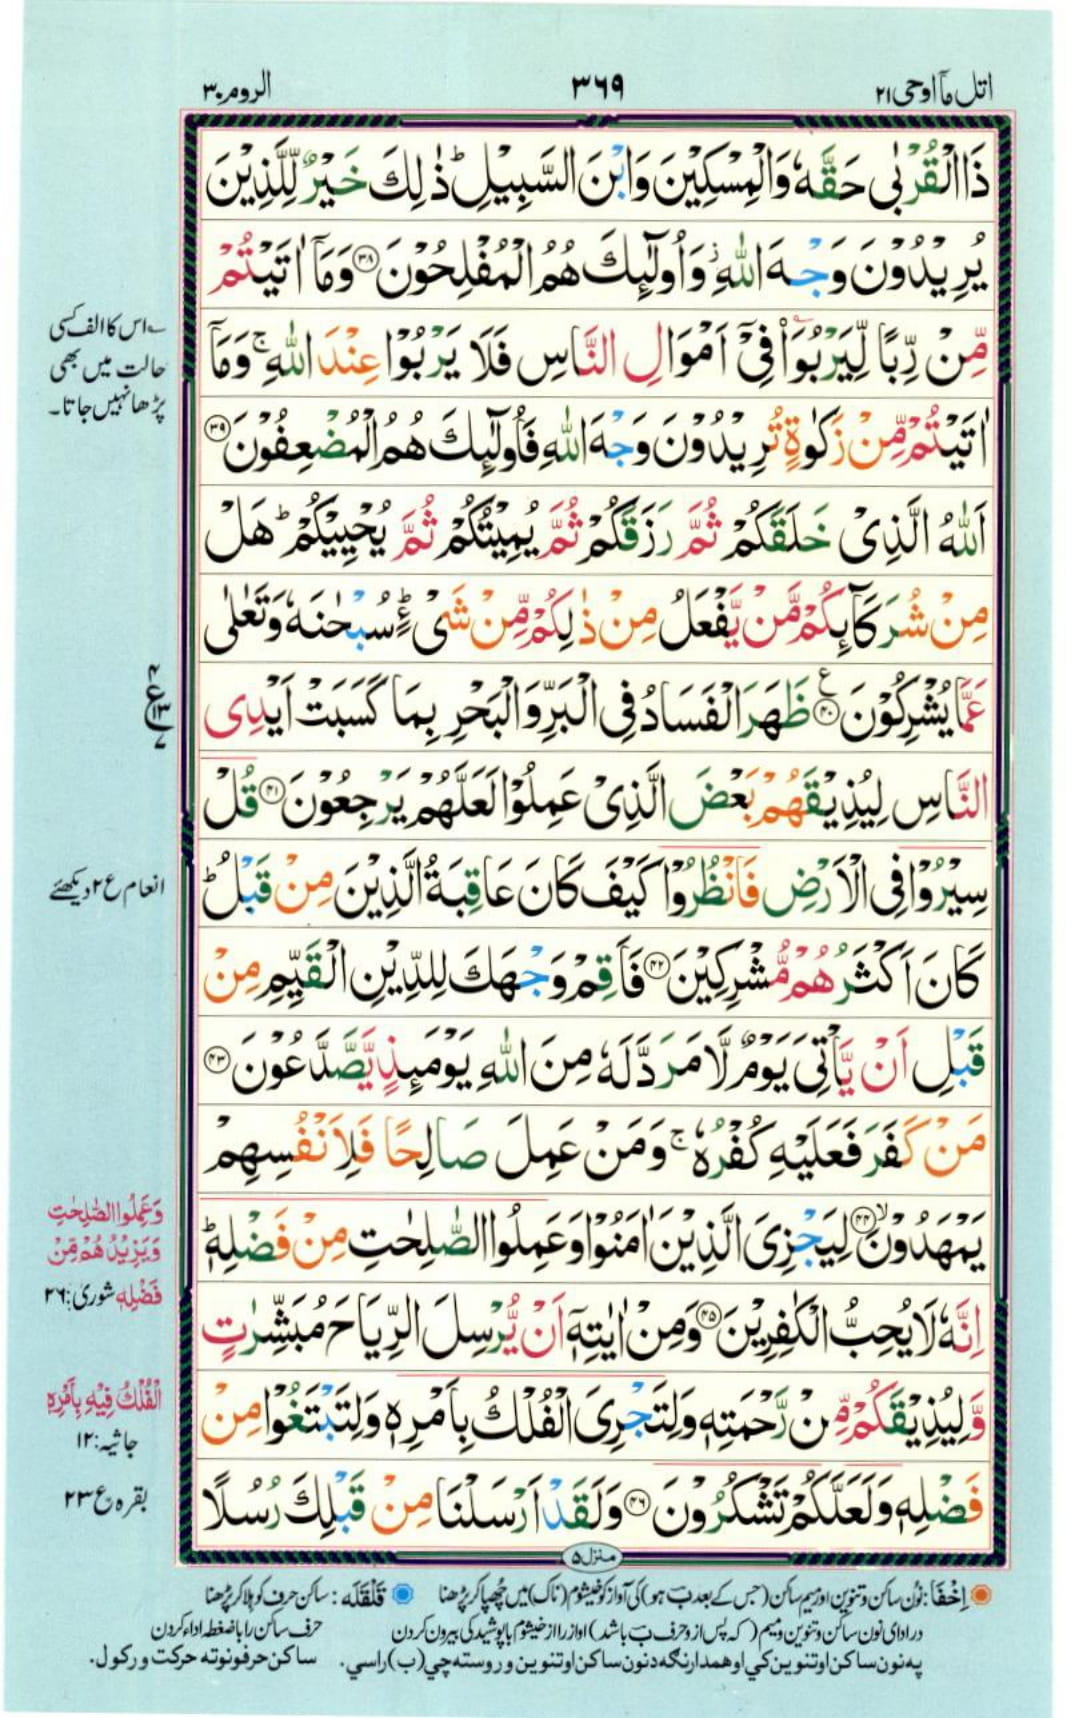 اتل مآ اوحی ۲۱
۳۶۹
الروم ۳۰
ذَاالْقُرْبٰى حَقَّهٗ وَالْمِسْكِيْنَ وَابْنَ السَّبِيْلِ ؕ ذٰلِكَ خَيْرٌ لِّلَّذِيْنَ
يُرِيْدُوْنَ وَجْهَ اللّٰهِ ؗ وَاُولٰٓئِكَ هُمُ الْمُفْلِحُوْنَ ﴿۳۸﴾ وَمَآ اٰتَيْتُمْ
مِّنْ رِّبًا لِّيَرْبُوَا۟ فِيْٓ اَمْوَالِ النَّاسِ فَلَا يَرْبُوْا عِنْدَ اللّٰهِ ۚ وَمَآ
اٰتَيْتُمْ مِّنْ زَكٰوةٍ تُرِيْدُوْنَ وَجْهَ اللّٰهِ فَاُولٰٓئِكَ هُمُ الْمُضْعِفُوْنَ ﴿۳۹﴾
اَللّٰهُ الَّذِيْ خَلَقَكُمْ ثُمَّ رَزَقَكُمْ ثُمَّ يُمِيْتُكُمْ ثُمَّ يُحْيِيْكُمْ ؕ هَلْ
مِنْ شُرَكَآئِكُمْ مَّنْ يَّفْعَلُ مِنْ ذٰلِكُمْ مِّنْ شَيْءٍ ؕ سُبْحٰنَهٗ وَتَعٰلٰى
عَمَّا يُشْرِكُوْنَ ﴿۴۰﴾ ظَهَرَ الْفَسَادُ فِي الْبَرِّ وَالْبَحْرِ بِمَا كَسَبَتْ اَيْدِي
النَّاسِ لِيُذِيْقَهُمْ بَعْضَ الَّذِيْ عَمِلُوْا لَعَلَّهُمْ يَرْجِعُوْنَ ﴿۴۱﴾ قُلْ
سِيْرُوْا فِي الْاَرْضِ فَانْظُرُوْا كَيْفَ كَانَ عَاقِبَةُ الَّذِيْنَ مِنْ قَبْلُ ؕ
كَانَ اَكْثَرُهُمْ مُّشْرِكِيْنَ ﴿۴۲﴾ فَاَقِمْ وَجْهَكَ لِلدِّيْنِ الْقَيِّمِ مِنْ
قَبْلِ اَنْ يَّاْتِيَ يَوْمٌ لَّا مَرَدَّ لَهٗ مِنَ اللّٰهِ يَوْمَئِذٍ يَّصَّدَّعُوْنَ ﴿۴۳﴾
مَنْ كَفَرَ فَعَلَيْهِ كُفْرُهٗ ۚ وَمَنْ عَمِلَ صَالِحًا فَلِاَنْفُسِهِمْ
يَمْهَدُوْنَ ﴿۴۴﴾ۙ لِيَجْزِيَ الَّذِيْنَ اٰمَنُوْا وَعَمِلُوا الصّٰلِحٰتِ مِنْ فَضْلِهٖ ؕ
اِنَّهٗ لَا يُحِبُّ الْكٰفِرِيْنَ ﴿۴۵﴾ وَمِنْ اٰيٰتِهٖٓ اَنْ يُّرْسِلَ الرِّيَاحَ مُبَشِّرٰتٍ
وَّلِيُذِيْقَكُمْ مِّنْ رَّحْمَتِهٖ وَلِتَجْرِيَ الْفُلْكُ بِاَمْرِهٖ وَلِتَبْتَغُوْا مِنْ
فَضْلِهٖ وَلَعَلَّكُمْ تَشْكُرُوْنَ ﴿۴۶﴾ وَلَقَدْ اَرْسَلْنَا مِنْ قَبْلِكَ رُسُلًا
منزل ۵
اس کا الف کسی
حالت میں بھی
پڑھا نہیں جاتا۔
۴
ع ۱۳
۷
انعام ع ۲ دیکھئے
وَعَمِلُوا الصّٰلِحٰتِ
وَيَزِيْدُهُمْ مِّنْ
فَضْلِهٖ شوریٰ: ۲۶
الْفُلْكُ فِيْهِ بِاَمْرِهٖ
جاثیہ: ۱۲
بقرہ ع ۲۳
اِخْفَا: نُون ساکن و تنوین اور میم ساکن (جس کے بعد ب ہو) کی آواز کو خیشوم (ناک) میں چھپا کر پڑھنا قَلْقَلَه: ساکن حرف کو ہلا کر پڑھنا
درادای نون ساکن و تنوین و میم (که پس از و حرف ب باشد) اواز را از خیشوم با پوشیدگی بیرون کردن حرف ساکن را با ضغطه اداء کردن
په نون ساکن او تنوین کي او همدا رنگه د نون ساکن او تنوین وروسته چي (ب) راسي. ساکن حرفونو ته حرکت ورکول.